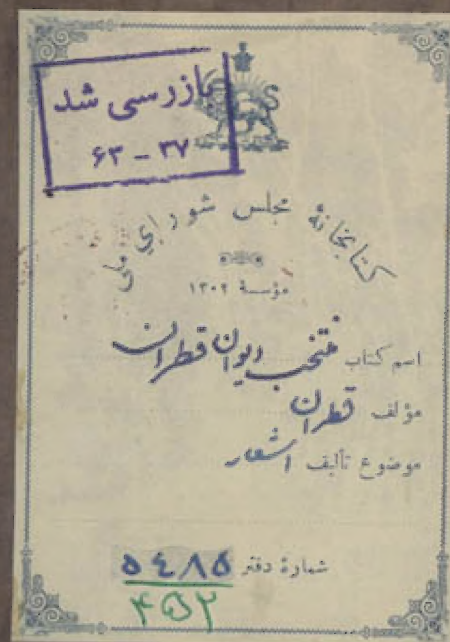 بازرسی شد
۶۳ - ۳۷
کتابخانهٔ مجلس شورای ملی
مؤسسهٔ ۱۳۰۲
اسم کتاب منتخب دیوان قطران
مؤلف قطران
موضوع تألیف اشعار
شمارهٔ دفتر ۵۴۸۵
۴۵۲